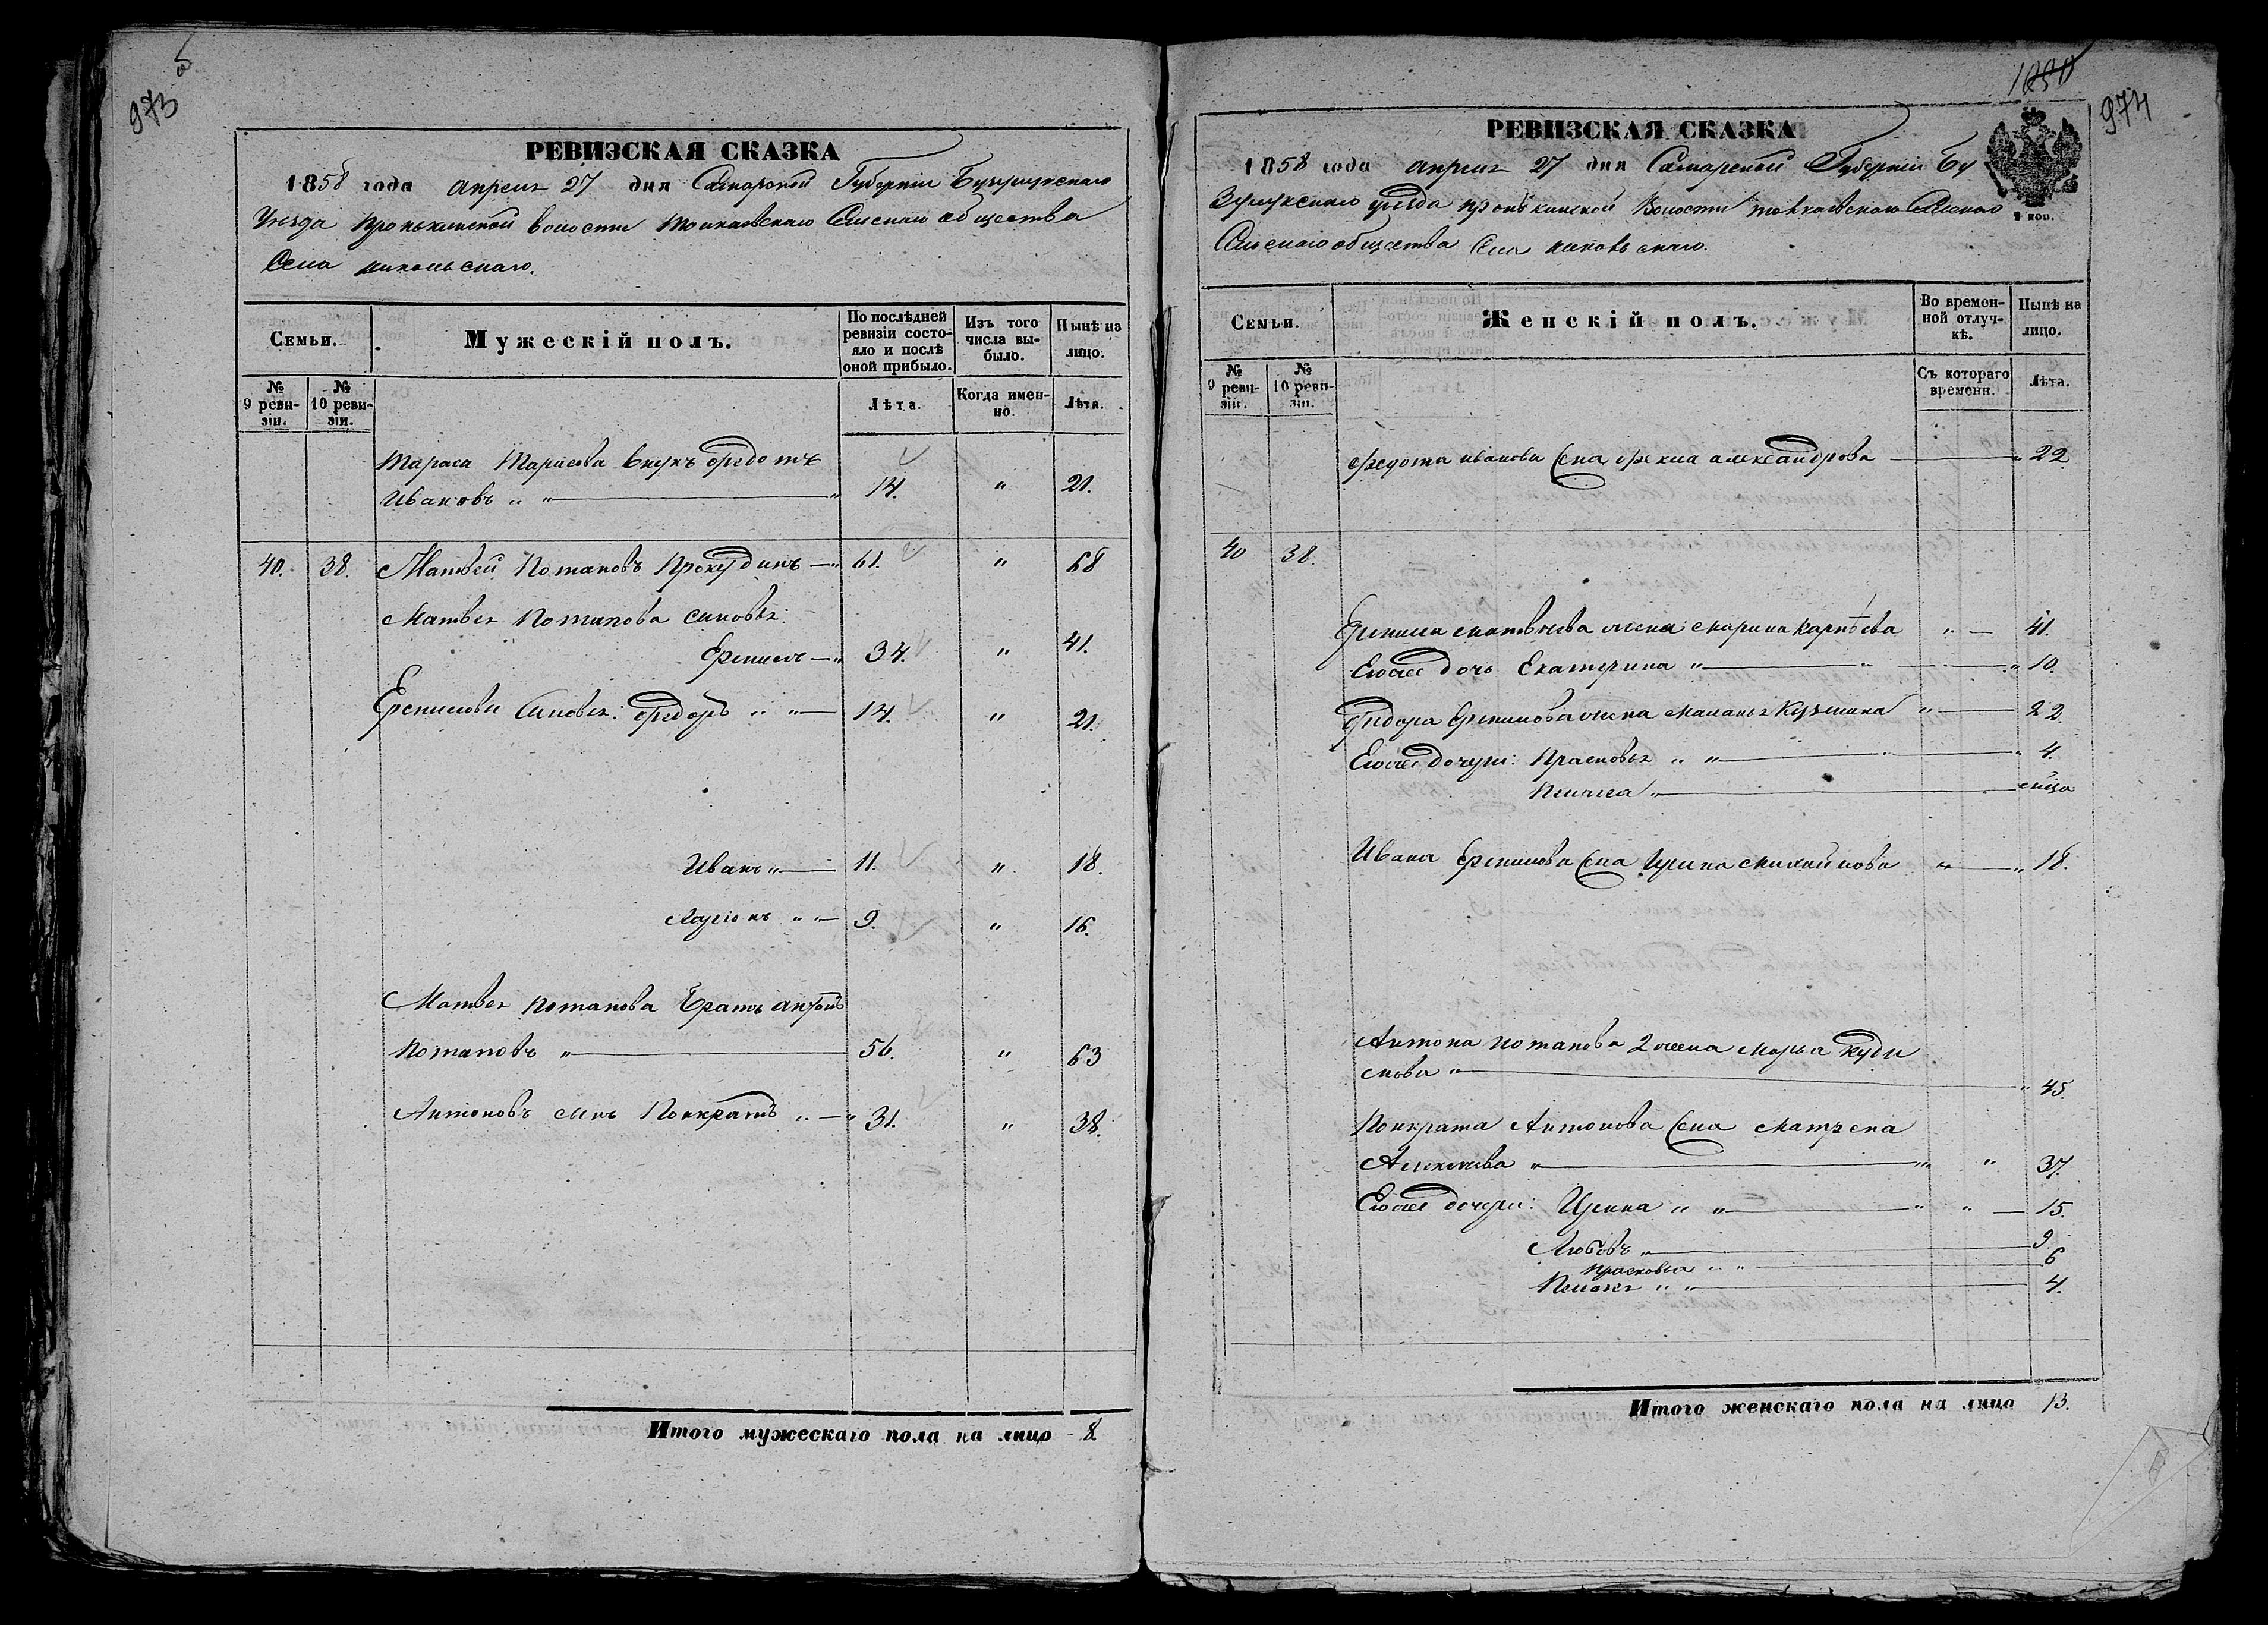 973
об
РЕВИЗСКАЯ СКАЗКА
1858 года апреля 27 дня Самарской Губернии Бузулукскаго
Уѣзда пронькинской волости Толкаевскаго Сельскаго общества
Села никольскаго.
Семьи.
Мужескій полъ.
По послѣдней ревизіи состояло и послѣ оной прибыло.
Изъ того числа выбыло.
Нынѣ на лицо.
№ 9 ревизіи.
№ 10 ревизіи.
Лѣта.
Когда именно.
Лѣта.
Тараса Тарасова внукъ Федотъ
Ивановъ „ „ 14. „ 21.
40. 38. Матвей Потаповъ Прокудинъ 61. „ 68
Матвея Потапова сыновья:
Ефимъ 34. „ 41.
Ефимовы Сыновья: Федоръ „ „ 14. „ 21.
Иванъ „ 11. „ 18.
Ларіонъ „ „ 9. „ 16.
Матвея Потапова братъ антонъ
Потаповъ „ 56. „ 63
Антоновъ сынъ Понкратъ „ 31. „ 38.
Итого мужескаго пола на лицо 8.
1050
974
РЕВИЗСКАЯ СКАЗКА
1858 года апреля 27 дня Самарской Губерніи Бу
зулукскаго уѣзда пронькинской Волости толкаевскаго
Сельскаго общества Села никольскаго.
Семьи.
Женскій полъ.
Во временной отлучкѣ.
Нынѣ на лицо.
№ 9 ревизіи.
№ 10 ревизіи.
Съ котораго времени.
Лѣта.
Федота иванова Жена Фекла александрова „ 22
40 38.
Ефима матвеева жена марина карпѣева „ 41.
Еюже дочь Екатерина „ „ 10.
Федора Ефимова жена маланья Кузмина „ 22.
Еюже дочери: Прасковья „ „ 4.
Ивана Ефимова Жена Ирина михайлова „ „ 18.
Антона потапова 2 жена марья куди
мова „ „ 45.
Понкрата Антонова Жена матрена
Алексѣева „ „ „ 37.
Еюже дочери: Ирина „ „ „ „ 15.
Любовь „ 9
прасковья „ „ 6
Пелагея „ „ 4.
Итого женскаго пола на лицо 13.